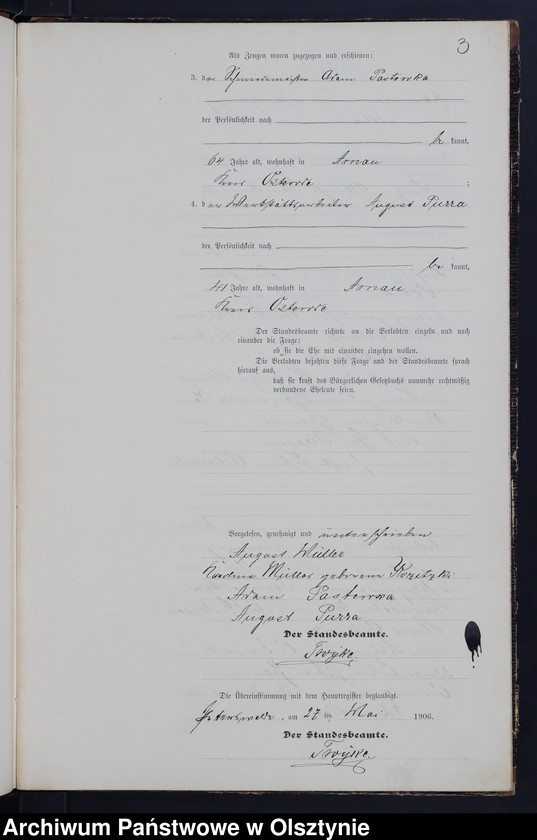 3
Als Zeugen waren zugezogen und erschienen:
3. der Schneidermeister Adam Pastowka
der Persönlichkeit nach
be kannt,
64 Jahre alt, wohnhaft in Arnau
Kreis Osterode ;
4. der Werkstättsarbeiter August Purra
der Persönlichkeit nach
be kannt,
41 Jahre alt, wohnhaft in Arnau
Kreis Osterode
Der Standesbeamte richtete an die Verlobten einzeln und nach
einander die Frage:
ob sie die Ehe mit einander eingehen wollen.
Die Verlobten bejahten diese Frage und der Standesbeamte sprach
hierauf aus,
daß sie kraft des Bürgerlichen Gesetzbuchs nunmehr rechtmäßig
verbundene Eheleute seien.
Vorgelesen, genehmigt und unterschrieben
August Müller
Müller geborene
Adam Pastowka
August Purra
Der Standesbeamte.
Die Übereinstimmung mit dem Hauptregister beglaubigt.
Peterswalde, am 27 ten Mai 1906.
Der Standesbeamte.
Archiwum Państwowe w Olsztynie